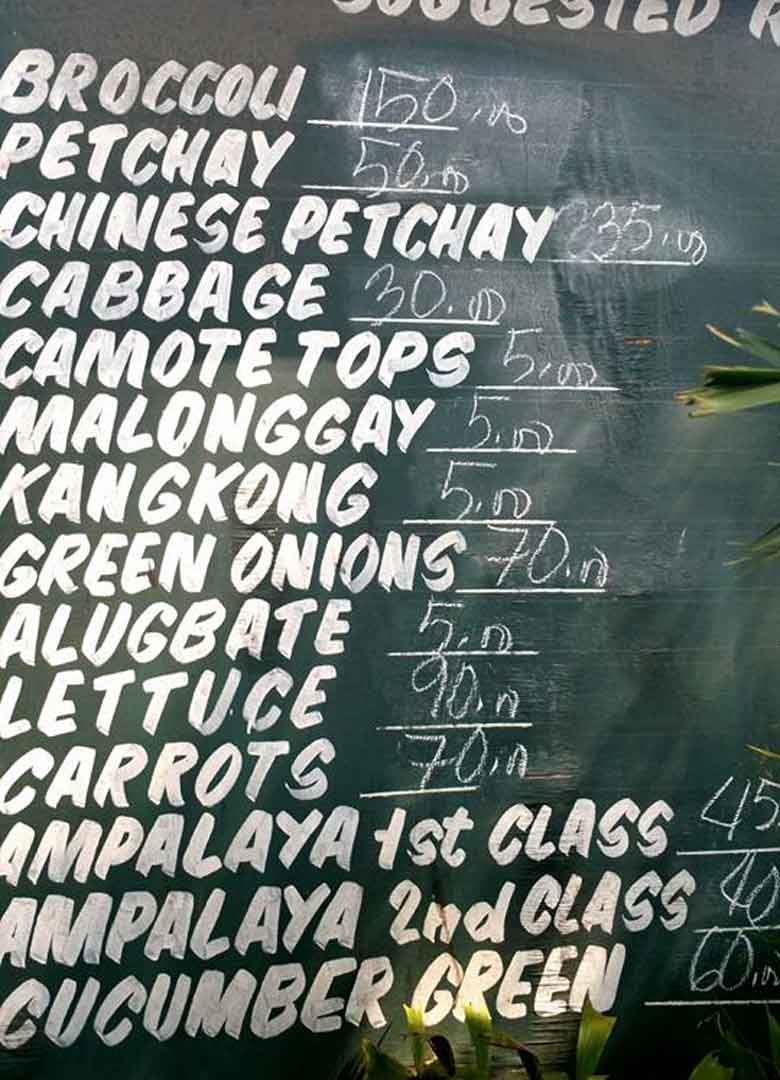 SUGGESTED R
BROCCOLI 150.00
PETCHAY 50.00
CHINESE PETCHAY 35.00
CABBAGE 30.00
CAMOTE TOPS 5.00
MALONGGAY 5.00
KANGKONG 5.00
GREEN ONIONS 70.00
ALUGBATE 5.00
LETTUCE 90.00
CARROTS 70.00
AMPALAYA 1st CLASS 45
AMPALAYA 2nd CLASS 40
CUCUMBER GREEN 60.00